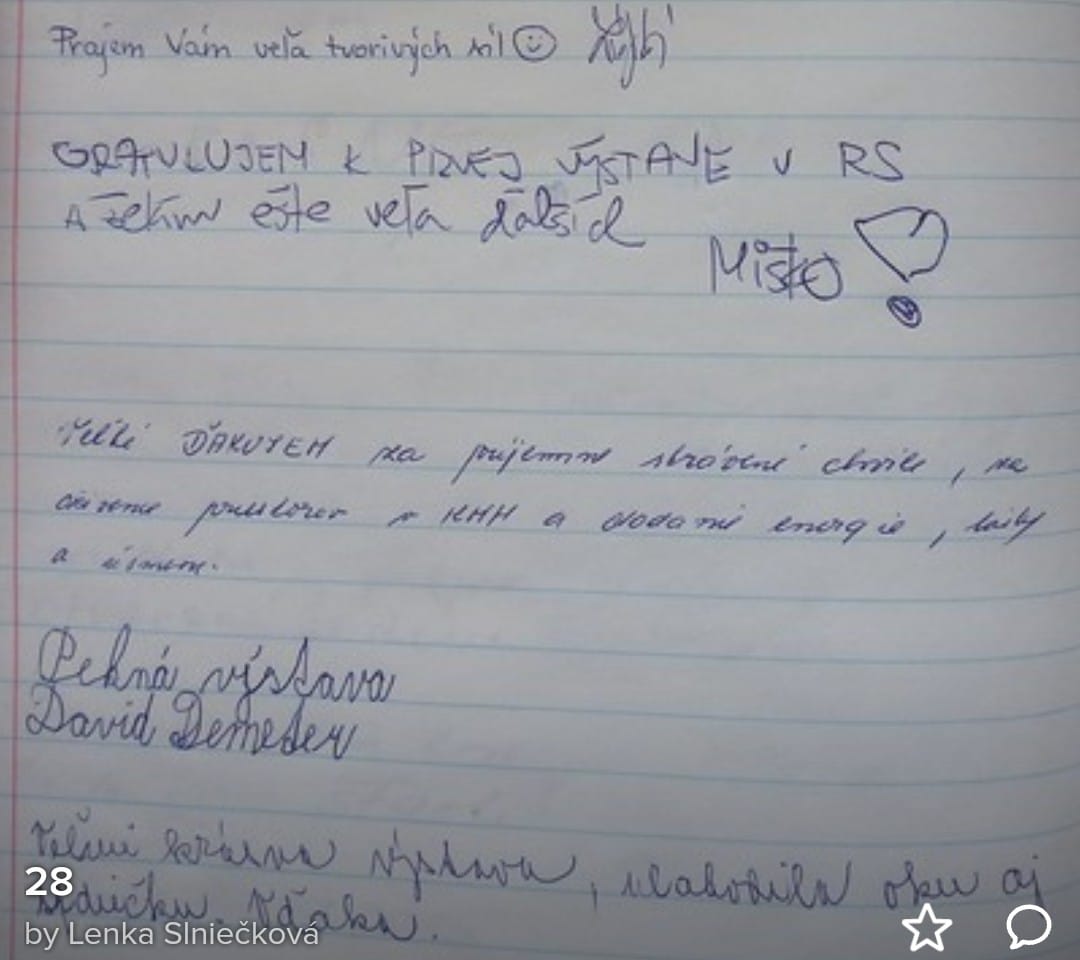 Prajem Vám veľa tvorivých síl
GRATULUJEM K PRVEJ VÝSTAVE V RS
A želám ešte veľa ďalších
Miško
Veľké ĎAKUJEM za príjemne strávené chvíle, za
priestorov v HMH a dodanie energie,
a úsmevu.
Pekná výstava
David Demeter
Veľmi krásna výstava, ulahodila oku aj
srdiečku. Vďaka.
28
by Lenka Slniečková